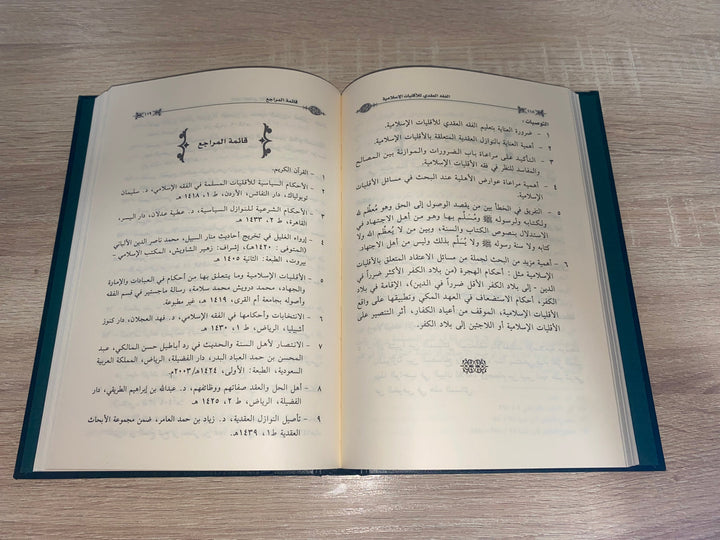 ١١٨
الفقه العقدي للأقليات الإسلامية
التوصيات:
١ - ضرورة العناية بتعليم الفقه العقدي للأقليات الإسلامية.
٢ - أهمية العناية بالنوازل العقدية المتعلقة بالأقليات الإسلامية.
٣ - التأكيد على مراعاة باب الضرورات والموازنة بين المصالح
والمفاسد للنظر في فقه الأقليات الإسلامية.
٤ - أهمية مراعاة عوارض الأهلية عند البحث في مسائل الأقليات
الإسلامية.
٥ - التفريق في الخطأ بين من يقصد الوصول إلى الحق وهو مُعظّم لله
ولكتابه ولرسوله ﷺ ومُسَلِّم بها وهو من أهل الاجتهاد في
الاستدلال بنصوص الكتاب والسنة، وبين من لا يعظّم الله ولا
كتابه ولا سنة رسوله ﷺ ولا يُسَلِّم بذلك وليس من أهل الاجتهاد.
٦ - أهمية مزيد من البحث لجملة من مسائل الاعتقاد المتعلق بالأقليات
الإسلامية مثل: أحكام الهجرة (من بلاد الكفر الأكثر ضرراً في
الدين - إلى بلد الكفر الأقل ضرراً في الدين)، الإقامة في بلاد
الكفر، أحكام الاستضعاف في العهد المكي وتطبيقها على واقع
الأقليات الإسلامية، الموقف من أعياد الكفار، أثر التنصير على
الأقليات الإسلامية أو اللاجئين إلى بلاد الكفر.
قائمة المراجع
١١٩
قائمة المراجع
١ - القرآن الكريم.
٢ - الأحكام السياسية للأقليات المسلمة في الفقه الإسلامي، د. سليمان
توبولياك، دار النفائس، الأردن، ط ١، ١٤١٨ هـ.
٣ - الأحكام الشرعية للنوازل السياسية، د. عطية عدلان، دار اليسر،
القاهرة، ط ٢، ١٤٣٣ هـ.
٤ - إرواء الغليل في تخريج أحاديث منار السبيل، محمد ناصر الدين الألباني
(المتوفى: ١٤٢٠هـ)، إشراف: زهير الشاويش، المكتب الإسلامي -
بيروت، الطبعة: الثانية ١٤٠٥ هـ.
٥ - الأقليات الإسلامية وما يتعلق بها من أحكام في العبادات والإمارة
والجهاد، محمد درويش محمد سلامة، رسالة ماجستير في قسم الفقه
وأصوله بجامعة أم القرى، ١٤١٩ هـ، غير مطبوعة.
٦ - الانتخابات وأحكامها في الفقه الإسلامي، د. فهد العجلان، دار كنوز
أشبيليا، الرياض، ط ١، ١٤٣٠ هـ.
٧ - الانتصار لأهل السنة والحديث في رد أباطيل حسن المالكي، عبد
المحسن بن حمد العباد البدر، دار الفضيلة، الرياض، المملكة العربية
السعودية، الطبعة: الأولى، ١٤٢٤هـ/٢٠٠٣م.
٨ - أهل الحل والعقد صفاتهم ووظائفهم، د. عبدالله بن إبراهيم الطريقي، دار
الفضيلة، الرياض، ط ٢، ١٤٢٥ هـ.
٩ - تأصيل النوازل العقدية، د. زياد بن حمد العامر، ضمن مجموعة الأبحاث
العقدية ط١، ١٤٣٩هـ.